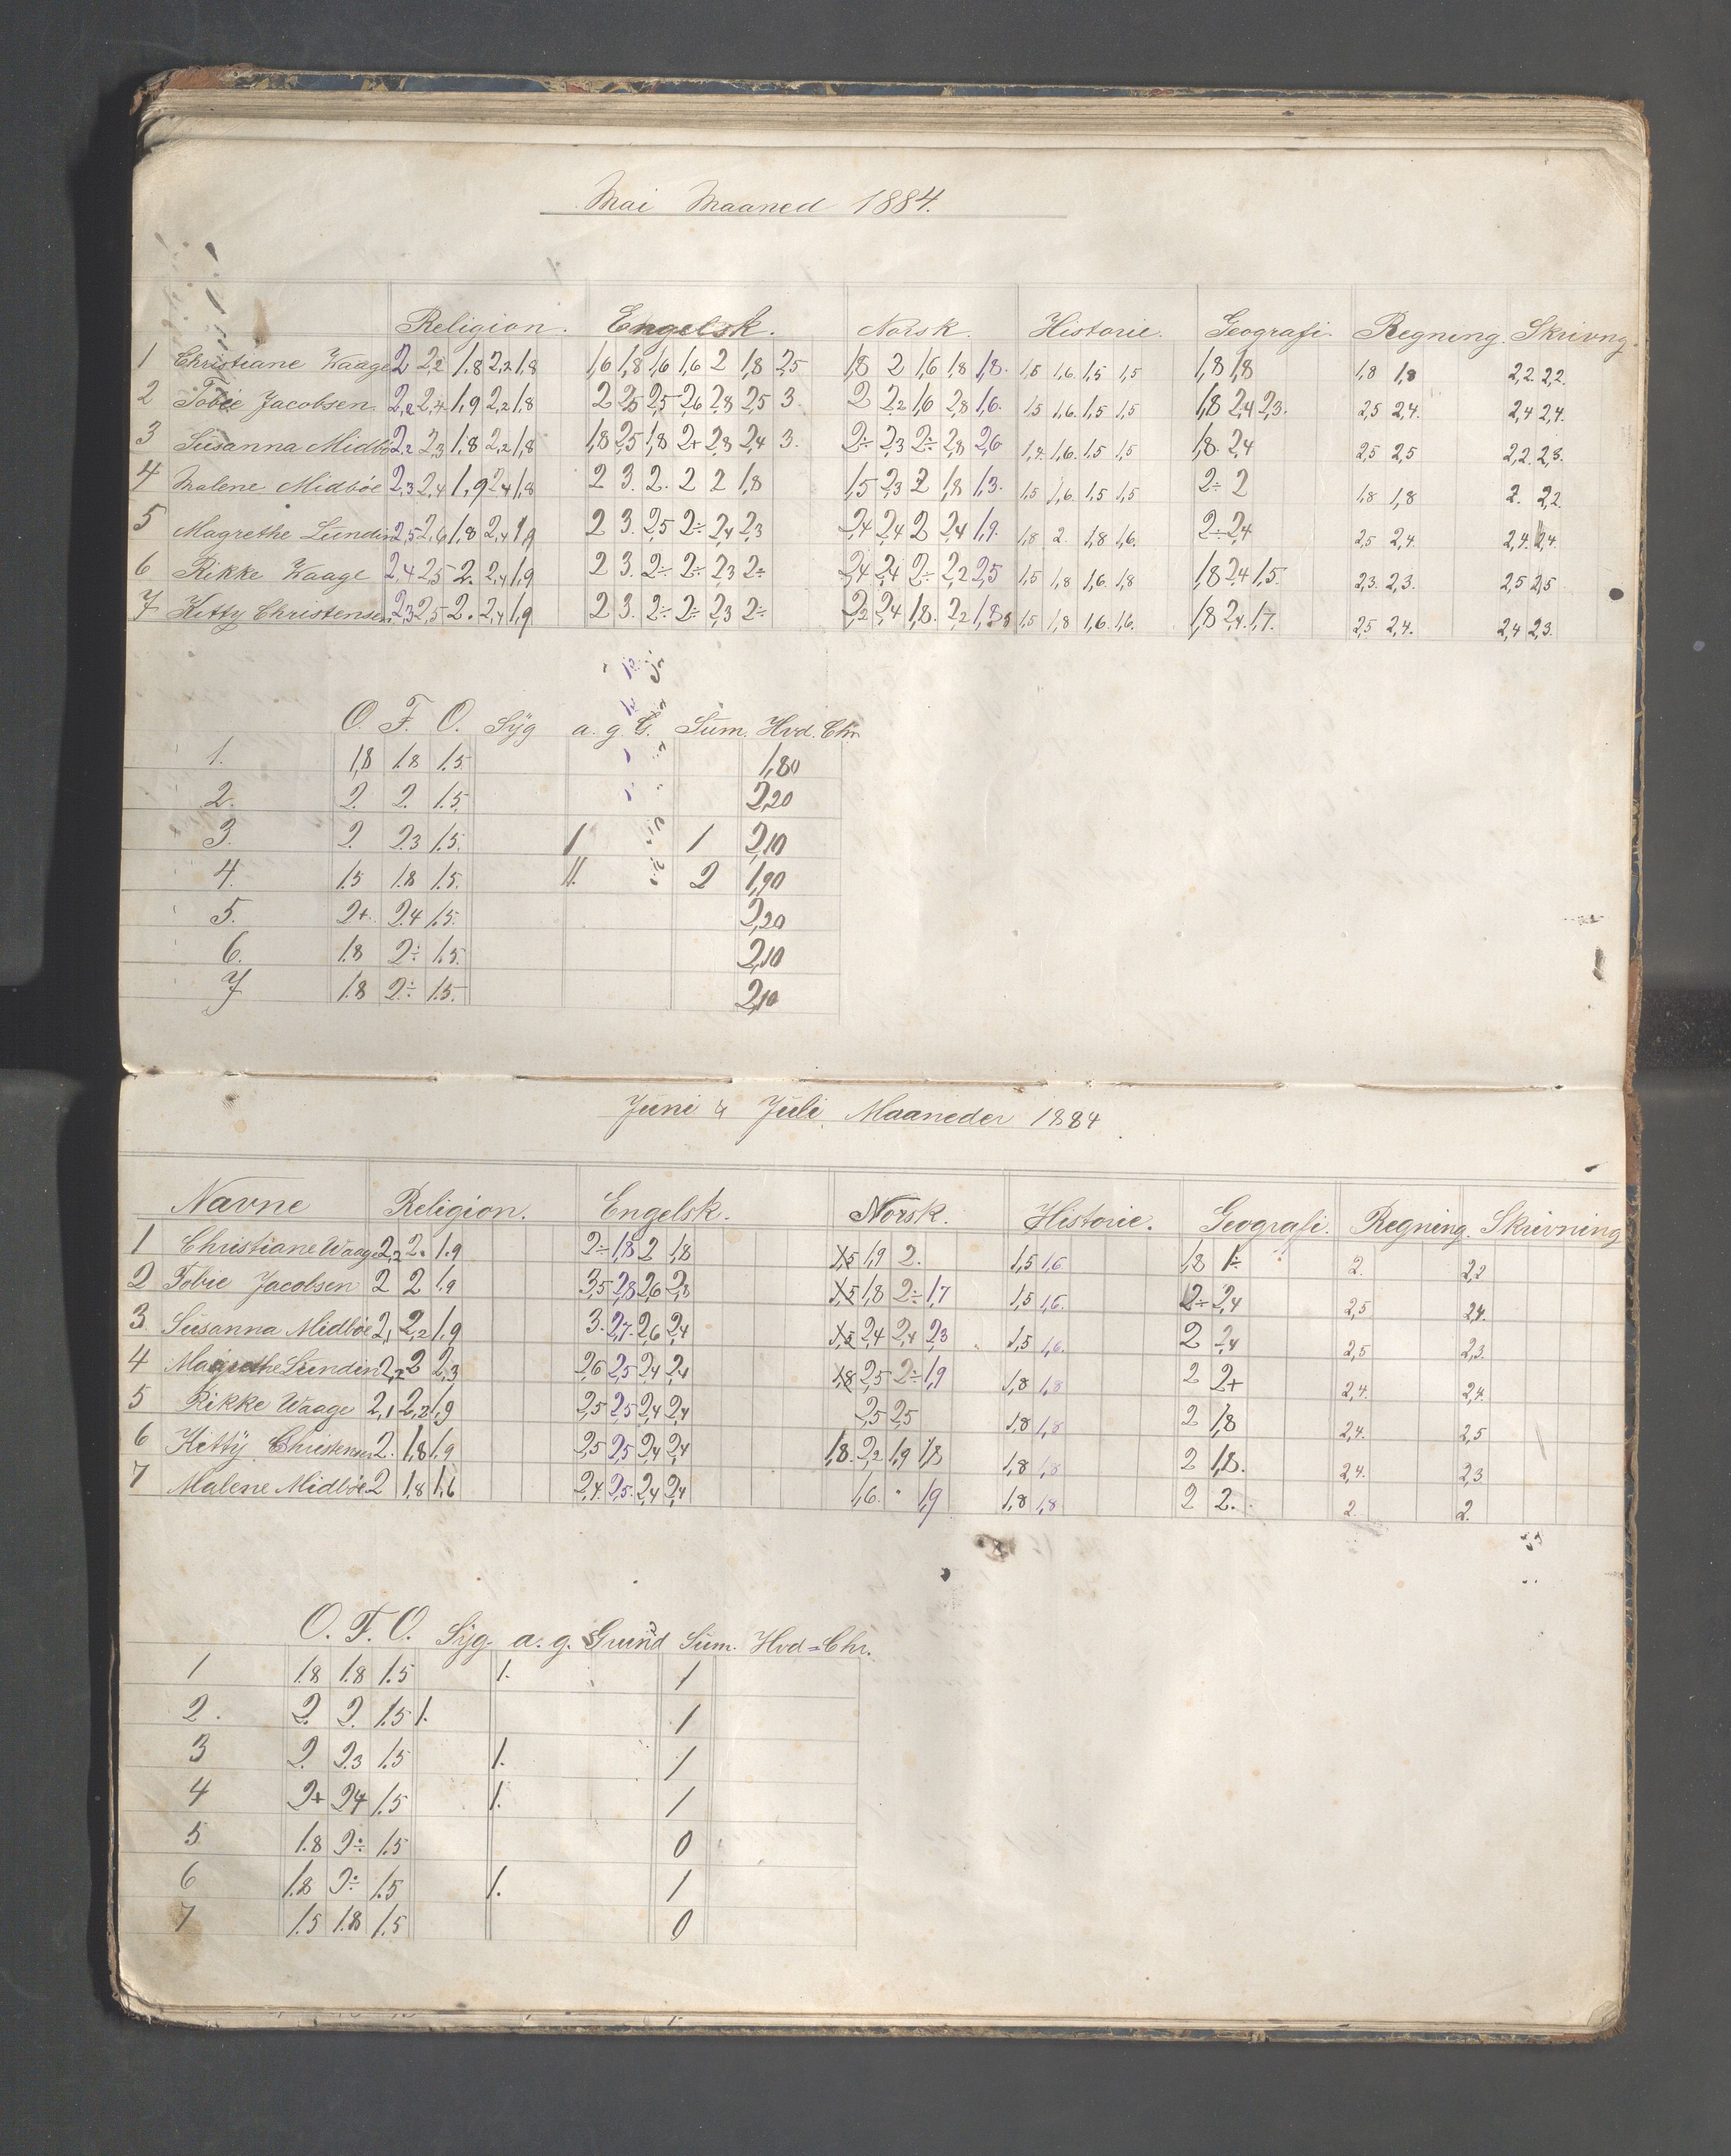 Mai Maaned 1884.
Religion. Engelsk. Norsk. Historie. Geografi. Regning. Skrivng.
1 Christiane Waage 2 2,2 1,8 2,2 1,8 1,6 1,8 1,6 1,6 2 1,8 2,5 1,8 2 1,6 1,8 1,8. 1,5 1,6. 1,5 1,5 1,8 1,8 1,8 1,8 2,2. 2,2.
2 Tobie Jacobsen 2,2 2,4 1,9 2,2 1,8 2 2,5 2,5 2,6 2,8 2,5 3. 2 2,2 1,6 2,8 1,6. 1,5 1,6. 1,5 1,5 1,8 2,4 2,3. 2,5 2,4. 2,4 2,4.
3 Susanna Midbö 2,2 2,3 1,8 2,2 1,8 1,8 2,5 1,8 2+ 2,8 2,4 3. 2÷ 2,3 2÷ 2,8 2,6 1,4. 1,6. 1,5 1,5 1,8. 2,4 2,5 2,5 2,2. 2,3.
4 Malene Midböe 2,3 2,4 1,9 2,4 1,8 2 3. 2. 2 2 1,8 1,5 2,3 2 1,8 1,3. 1,5 1,6. 1,5 1,5 2÷ 2 1,8 1,8 2. 2,2
5 Magrethe Lundin 2,5 2,6 1,8 2,4 1,9 2 3. 2,5 2÷ 2,4 2,3 2,4 2,4 2 2,4 1,9. 1,8 2. 1,8 1,6. 2÷ 2,4 2,5 2,4. 2,4. 2,4.
6 Rikke Waage 2,4 2,5 2. 2,4 1,9 2 3. 2÷ 2÷ 2,3 2÷ 2,4 2,4 2÷ 2,2 2,5 1,5 1,8 1,6. 1,8 1,8 2,4 1,5. 2,3. 2,3. 2,5 2,5
7 Kitty Christensen 2,3 2,5 2. 2,4 1,9 2 3. 2÷ 2÷ 2,3 2÷ 2,2 2,4 1,8. 2,2 1,8 1,5 1,8 1,6. 1,6. 1,8 2,4. 1,7. 2,5 2,4. 2,4 2,3.
O. F. O. Syg a. g. G. Sum. Hvd. Chr.
1. 1,8 1.8 1.5 1,80
2. 2. 2. 1.5. 2,20
3. 2. 2.3 1.5. 1 1 2,10
4. 1.5 1.8 1.5. 11. 2 1,90
5. 2+. 2.4 1.5. 2,20
6. 1.8 2÷ 1.5. 2,10
7 1.8 2÷ 1.5. 2,10
Juni & Juli Maaneder 1884
Navne Religion. Engelsk. Norsk. Historie. Geografi. Regning. Skrivning
1 Christiane Waage 2,2 2. 1.9 2÷ 1,8 2 1,8 1,5 1,9 2. 1,5 1,6. 1,8 1÷ 2. 2,2
2 Tobie Jacobsen 2 2 1,9 3,5 2,8 2,6 2,3 1,5 1,8 2÷ 1,7 1,5 1,6. 2÷ 2,4 2,5 2,4.
3. Susanna Midböe 2,1 2,2 1,9 3. 2,7. 2,6 2,4 1,5 2,4 2,4 2,3 1,5 1,6. 2 2,4 2,5 2,3.
4 Magrethe Lundin 2,2 2 2,3 2,6 2,5 2,4 2,4 1,8 2,5 2÷ 1,9 1,8 1,8 2 2+ 2,4. 2,4.
5 Rikke Waage 2,1 2,2 1,9 2,5 2,5 2,4 2,4 2,5 2,5 1,8 1,8 2 1,8 2,4. 2,5
6 Kitty Christensen 2. 1,8 1,9 2,5 2,5 2,4 2,4 1,8. 2,2 1,9 1,8 1,8 1,8 2 1,8. 2,4. 2,3
7 Malene Midböe 2 1,8 1,6 2,4. 2,5. 2,4 2,4 1,6. " 1,9 1,8 1,8 2 2. 2. 2.
O. F. O. Syg. a. g. Grund Sum. Hvd=Chr.
1 1.8 1.8 1.5 1. 1
2. 2. 2. 1.5 1. 1
3 2. 2.3 1.5 1. 1
4 2+ 2.4 1.5 1. 1
5 1.8 2÷ 1.5 0
6 1.8 2÷ 1.5 1. 1
7 1.5 1.8 1.5 0